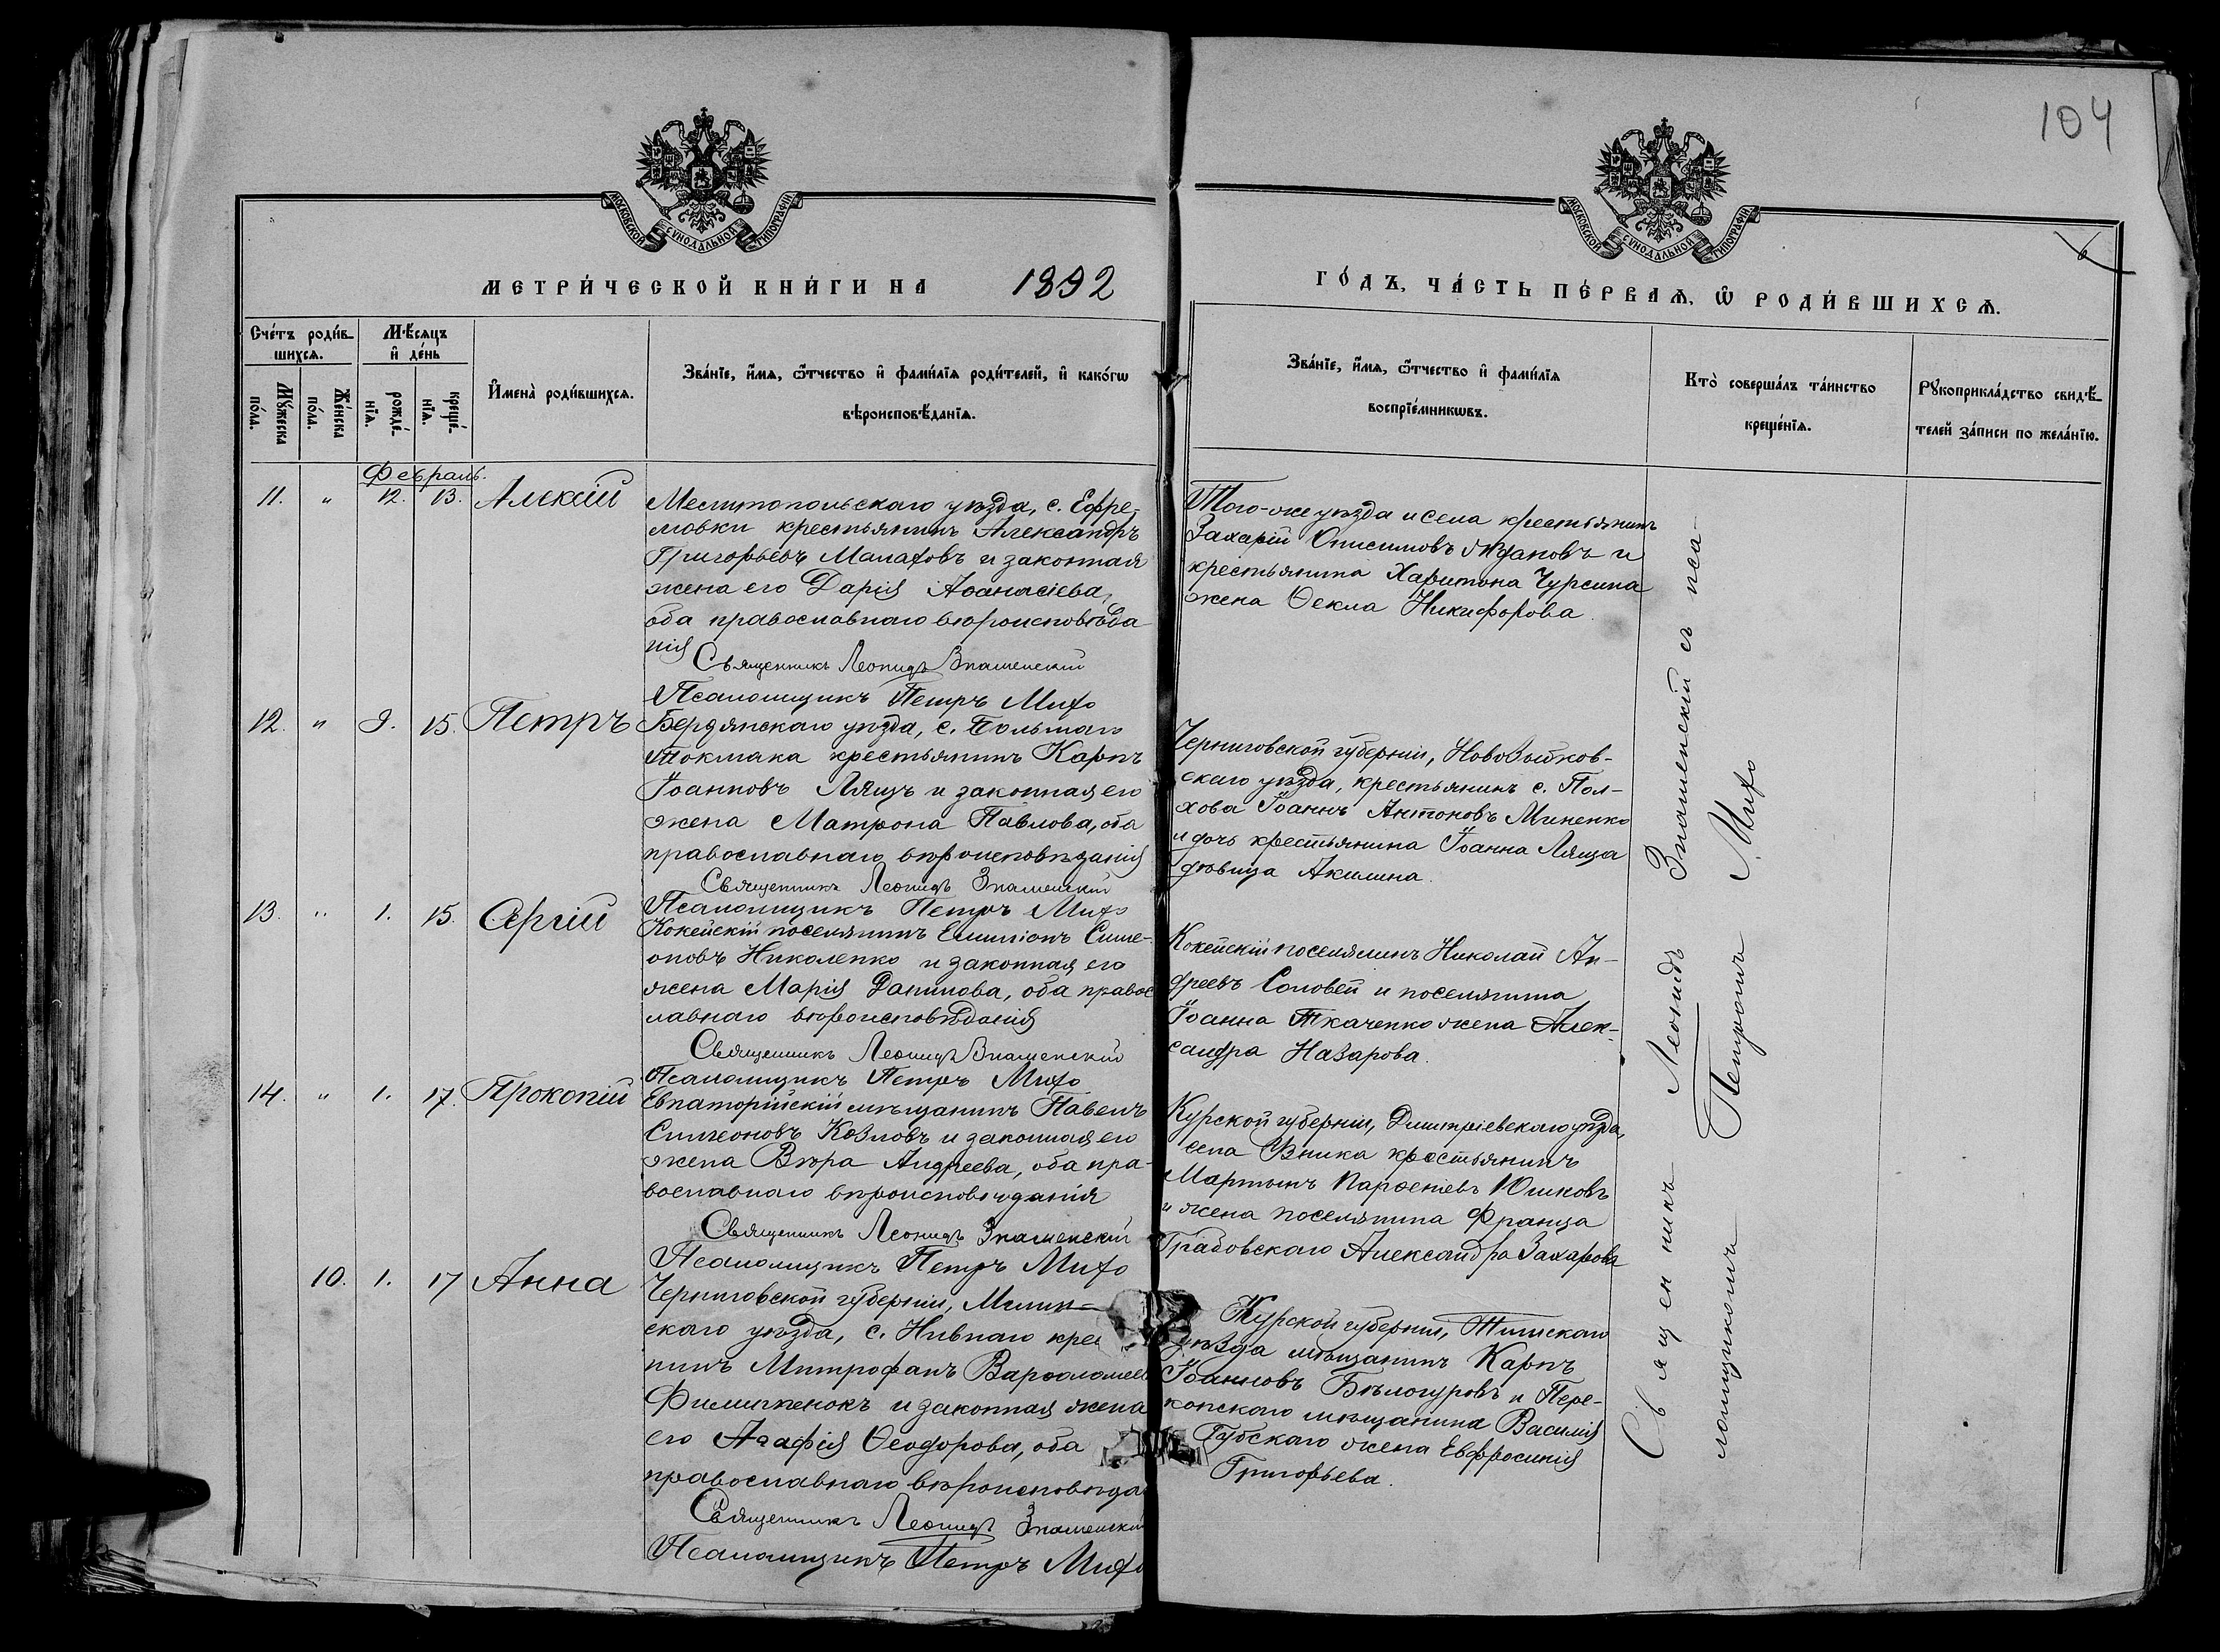 104
МОСКОВСКОЙ СУНОДАЛЬНОЙ ТИПОГРАФІИ
МОСКОВСКОЙ СУНОДАЛЬНОЙ ТИПОГРАФІИ
МЕТРИ́ЧЕСКОЙ КНИ́ГИ НА 1892
ГО́ДЪ, ЧА́СТЬ ПЕ́РВАѦ, Ѿ РОДИ́ВШИХСѦ.
Сче́тъ роди́в-
шихсѧ.
Мꙋ́жеска
по́ла.
Же́нска
по́ла.
Мѣ́сѧцъ
и҆ де́нь
рожде́-
нїѧ.
креще́-
нїѧ.
И҆мена̀ роди́вшихсѧ.
Зва́нїе, и҆́мѧ, ѻ҆́тчество и҆ фами́лїѧ роди́телей, и҆ како́гѡ
вѣроисповѣ́данїѧ.
Зва́нїе, и҆́мѧ, ѻ҆́тчество и҆ фами́лїѧ
воспрїе́мникѡвъ.
Кто̀ соверша́лъ та́инство
креще́нїѧ.
Рꙋкоприкла́дство свидѣ́-
телей за́писи по жела́нїю.
Февраль.
11. " 12. 13. Алексій
Мелитопольскаго уѣзда, с. Ефре-
мовки крестьянинъ Александръ
Григорьевъ Малаховъ и законная
жена его Дарія Аѳанасіева,
оба православнаго вѣроисповѣда
нія
Священникъ Леонидъ Знаменскій
Псаломщикъ Петръ Михо
Того-же уѣзда и села крестьянинъ
Захарій Онисимовъ Ждановъ и
крестьянина Харитона Чурсина
жена Ѳекла Никифорова.
12. " 9. 15. Петръ
Бердянскаго уѣзда, с. Большаго
Токмака крестьянинъ Карпъ
Іоанновъ Лящъ и законная его
жена Матрона Павлова, оба
православнаго вѣроисповѣданія
Священникъ Леонидъ Знаменскій
Псаломщикъ Петръ Михо
Черниговской губерніи, Новозыбков-
скаго уѣзда, крестьянинъ с. Пол-
хова Іоаннъ Антоновъ Миненко
и дочь крестьянина Іоанна Ляща
дѣвица Акилина.
13. " 1. 15. Сергій
Кокейскій поселянинъ Емиліонъ Симе-
оновъ Николенко и законная его
жена Марія Данилова, оба правос
лавнаго вѣроисповѣданія
Священникъ Леонидъ Знаменскій
Псаломщикъ Петръ Михо
Кокейскій поселянинъ Николай Ан-
дреевъ Соловей и поселянина
Іоанна Ткаченко жена Алек-
сандра Назарова.
14. " 1. 17. Прокопій
Евпаторійскій мѣщанинъ Павелъ
Симеоновъ Козловъ и законная его
жена Вѣра Андреева, оба пра-
вославнаго вѣроисповѣданія
Священникъ Леонидъ Знаменскій
Псаломщикъ Петръ Михо
Курской губерніи, Димитріевскаго уѣзда,
села крестьянинъ
Мартынъ Парѳеніевъ Юшковъ
и жена поселянина Франца
Грабовскаго Александра Захарова
10. 1. 17 Анна
Черниговской губерніи, Мглин-
скаго уѣзда, с. Нивнаго кре
нинъ Митрофанъ Варѳоломеев
Филипенокъ и законная жена
его Агафія Ѳеодорова, оба
православнаго вѣроисповѣда
Священникъ Леонидъ Знаменскій
Псаломщикъ Петръ Михо
Курской губерніи, Тимскаго
уѣзда мѣщанинъ Карпъ
Іоанновъ Бѣлогуровъ и Пере-
копскаго мѣщанина Василія
Губскаго жена Евфросинія
Григорьева.
Священникъ Леонидъ Знаменскій съ пса-
ломщикомъ Петромъ Михо